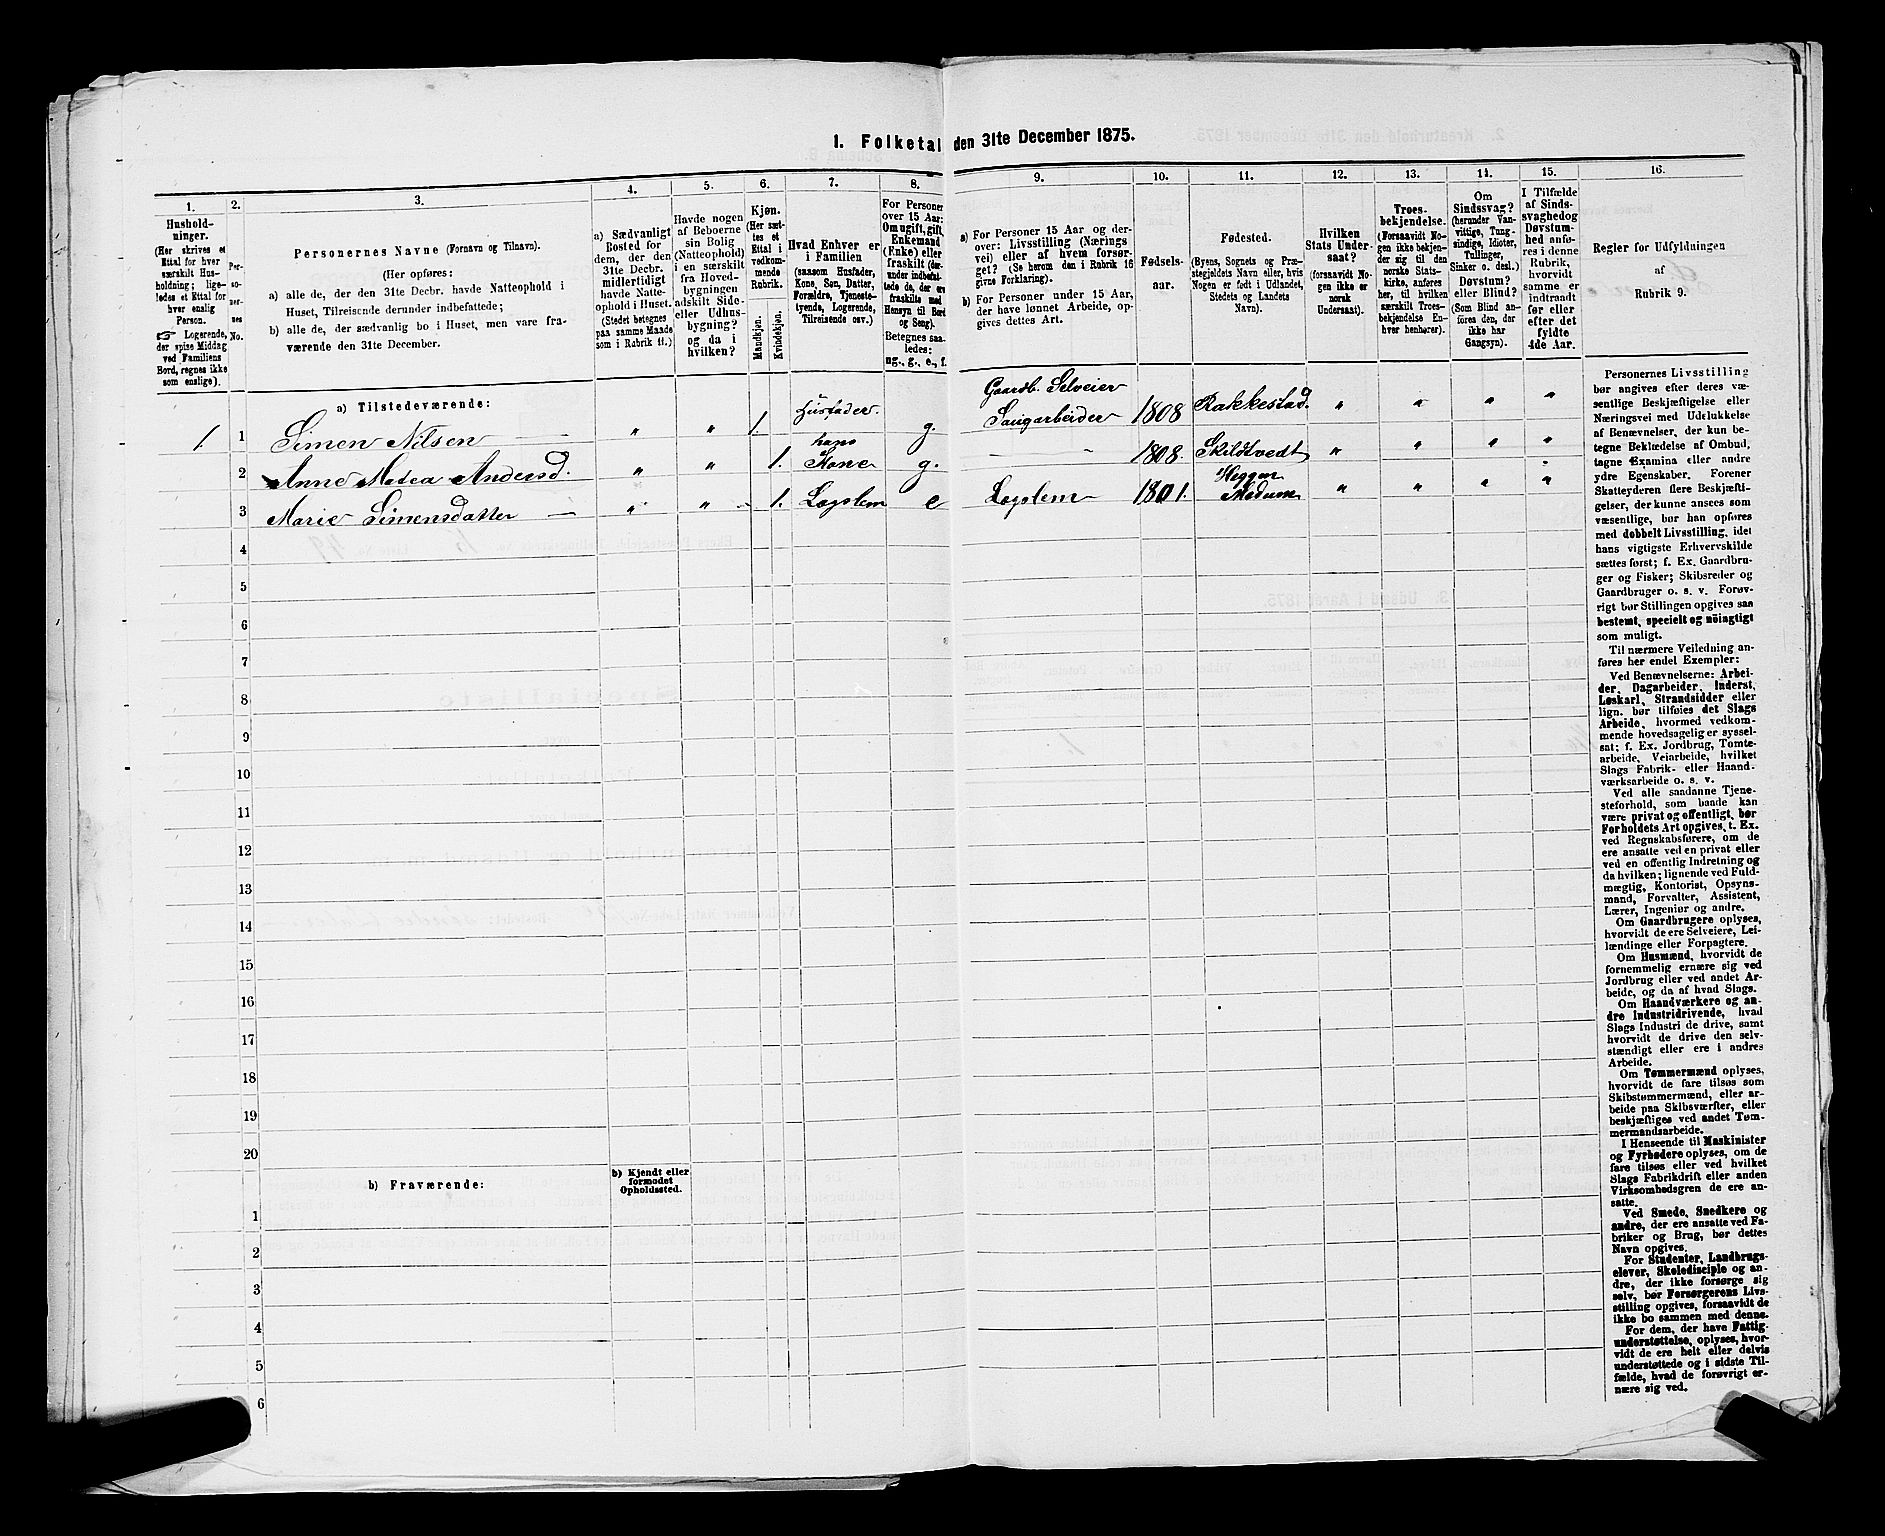 I. Folketal den 31te December 1875.
1.
2.
3.
4.
5.
6.
7.
8.
9.
10.
11.
12.
13.
14.
15.
16.
Hushold-
ninger.
(Her skrives et
Ettal for hver
særskilt Hus-
holdning; lige-
ledes et Ettal for
hver enslig
Person.
☞ Logerende,
der spise Middag
ved Familiens
Bord, regnes ikke
som enslige).
Per-
so-
ner-
nes
No.
Personernes Navne (Fornavn og Tilnavn).
(Her opføres:
a) alle de, der den 31te Decbr. havde Natteophold i
Huset, Tilreisende derunder indbefattede;
b) alle de, der sædvanlig bo i Huset, men vare fra-
værende den 31te December.
a) Sædvanligt
Bosted for
dem, der den
31te Decbr.
midlertidigt
havde Natte-
ophold i Huset.
(Stedet betegnes
paa samme Maade
som i Rubrik 11.)
Havde nogen
af Beboerne
sin Bolig
(Natteophold)
i en særskilt
fra Hoved-
bygningen
adskilt Side-
eller Udhus-
bygning?
og da i
hvilken?
Kjøn.
(Her sæt-
tes et
Ettal i
vedkom-
mende
Rubrik.
Mandkjøn.
Kvindekjøn.
Hvad Enhver er
i Familien
(saasom Husfader,
Kone, Søn, Datter,
Forældre, Tjeneste-
tyende, Logerende,
Tilreisende osv.)
For Personer
over 15 Aar:
Om ugift, gift,
Enkemand
(Enke) eller
fraskilt (der-
under indbefat-
tede de, der ere
fraskilte med
Hensyn til Bord
og Seng).
Betegnes saa-
ledes:
ug., g., e., f.
a) For Personer 15 Aar og der-
over: Livsstilling (Nærings
vei) eller af hvem forsør-
get? (Se herom den i Rubrik 16
givne Forklaring).
b) For Personer under 15 Aar,
der have lønnet Arbeide, op-
gives dettes Art.
Fødsels-
aar.
Fødested.
(Byens, Sognets og Præ-
stegjeldets Navn eller, hvis
Nogen er født i Udlandet,
Stedets og Landets
Navn).
Hvilken
Stats Under-
saat?
(forsaavidt No-
gen ikke er
norsk
Undersaat).
Troes-
bekjendelse.
(Forsaavidt No-
gen ikke bekjen-
der sig til den
norske Stats-
kirke, anføres
her, til hvilken
særskilt Troes-
bekjendelse En-
hver henhører).
Om
Sindssvag?
(herunder Van-
vittige, Tung-
sindige, Idioter,
Tullinger,
Sinker o. desl.)
Døvstum?
eller Blind?
(Som Blind an-
føres den, der
ikke har
Gangsyn).
I Tilfælde
af Sinds-
svaghed og
Døvstum-
hed anfø-
res i denne
Rubrik,
hvorvidt
samme er
indtraadt
før eller
efter det
fyldte
4de Aar.
Regler for Udfyldningen
af
Rubrik 9.
a) Tilstedeværende:
1. 1 Simen Nilsen " " 1. Husfader. g. Gaardb. Selveier Saugarbeider 1808 Rakkestad. " " " "
2 Anne Matea Andersd. " " 1. hans Kone g. — " 1808. Skildtvedt " " " "
3 Marie Simensdatter " " 1. Lægslem e Lægslem 1801. Heggen Modum " " " "
4
5
6
7
8
9
10
11
12
13
14
15
16
17
18
19
20
b) Fraværende:
b) Kjendt eller
formodet
Opholdssted.
1
2
3
4
5
6
Personernes Livsstilling
bør angives efter deres væ-
sentlige Beskjæftigelse eller
Næringsvei med Udelukkelse
af Benævnelser, der kun be-
tegne Beklædelse af Ombud,
tagne Examina eller andre
ydre Egenskaber. Forener
Skatteyderen flere Beskjæfti-
gelser, der kunne ansees som
væsentlige, bør han opføres
med dobbelt Livsstilling, idet
hans vigtigste Erhvervskilde
sættes først; f. Ex. Gaardbru-
ger og Fisker; Skibsreder og
Gaardbruger o. s. v. Forøv-
rigt bør Stillingen opgives saa
bestemt, specielt og nöiagtigt
som muligt.
Til nærmere Veiledning an-
føres her endel Exempler:
Ved Benævnelserne: Arbei-
der, Dagarbeider, Inderst,
Løskarl, Strandsidder eller
lign. bør tilføies det Slags
Arbeide, hvormed vedkom-
mende hovedsagelig er syssel-
sat; f. Ex. Jordbrug, Tomte-
arbeide, Veiarbeide, hvilket
Slags Fabrik- eller Haand-
værksarbeide o. s. v.
Ved alle saadanne Tjene-
steforhold, som baade kan
være privat og offentligt, bør
Forholdets Art opgives, t. Ex.
ved Regnskabsførere, om de
ere ansatte ved en privat eller
ved en offentlig Indretning og
da hvilken; lignende ved Fuld-
mægtig, Kontorist, Opsyns-
mand, Forvalter, Assistent,
Lærer, Ingeniør og andre.
Om Gaardbrugere oplyses,
hvorvidt de ere Selveiere, Lei-
lændinge eller Forpagtere.
Om Husmænd, hvorvidt de
fornemmelig ernære sig ved
Jordbrug eller ved andet Ar-
beide, og da af hvad Slags.
Om Haandværkere og an-
dre Industridrivende, hvad
Slags Industri de drive, samt
hvorvidt de drive den selv-
stændigt eller ere i andres
Arbeide.
Om Tømmermænd oplyses,
hvorvidt de fare tilsøs som
Skibstømmermænd, eller ar-
beide paa Skibsværfter, eller
beskjæftiges ved andet Tøm-
mermandsarbeide.
I Henseende til Maskinister
og Fyrbødere oplyses, om de
fare tilsøs eller ved hvilket
Slags Fabrikdrift eller anden
Virksomhedsgren de ere an-
satte.
Ved Smede, Snedkere og
andre, der ere ansatte ved Fa-
briker og Brug, bør dettes
Navn opgives.
For Studenter, Landbrugs-
elever, Skoledisciple og an-
dre, der ikke forsørge sig
selv, bør Forsørgerens Livs-
stilling opgives, forsaavidt de
ikke bo sammen med denne.
For dem, der have Fattig-
understøttelse, oplyses, hvor-
vidt de ere helt eller delvis
understøttede og i sidste Til-
fælde, hvad de forøvrigt er-
nære sig ved.